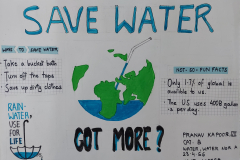 SAVE WATER
WAYS TO SAVE WATER
- Take a bucket bath
- Turn off the taps
- Save up dirty clothes
RAIN-
WATER,
USE
FOR
LIFE
GOT MORE?
NOT-SO-FUN FACTS
- Only 1.7% of global
is available to us.
- The US uses 400B gallon
per day.
PRANAV KAPOOR